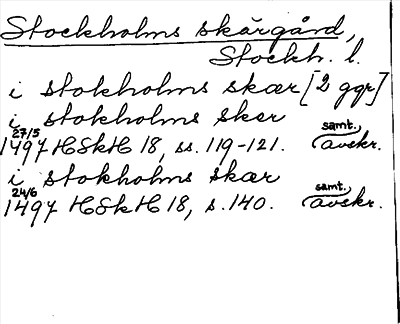 Stockholms skärgård,
Stockh. l.
i stokholms skær [2 ggr]
i stokholms sker
27/5 1497 HSkH 18, ss. 119-121. samt. avskr.
i stokholms skær
24/6 1497 HSkH 18, s. 140. samt. avskr.